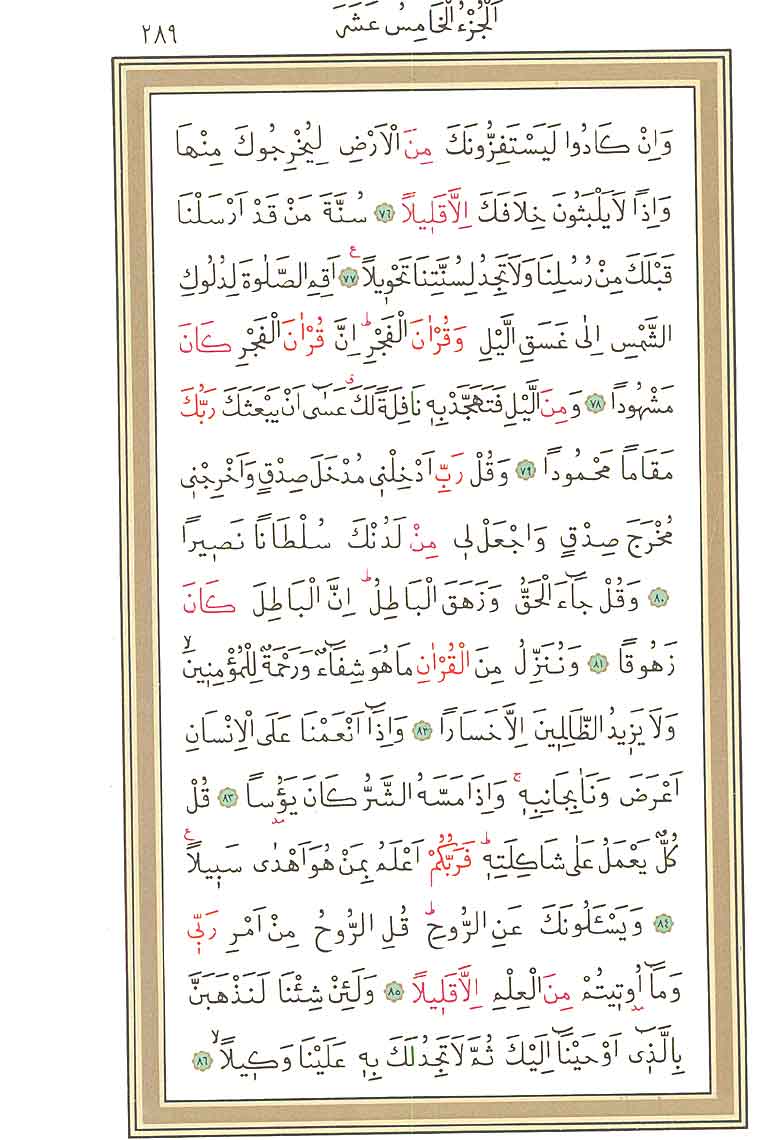 اَلْجُزْءُ الْخَامِسُ عَشَرَ ٢٨٩
وَاِنْ كَادُوا لَيَسْتَفِزُّونَكَ مِنَ الْاَرْضِ لِيُخْرِجُوكَ مِنْهَا
وَاِذًا لَا يَلْبَثُونَ خِلَافَكَ اِلَّا قَلٖيلًا ٧٦ سُنَّةَ مَنْ قَدْ اَرْسَلْنَا
قَبْلَكَ مِنْ رُسُلِنَا وَلَا تَجِدُ لِسُنَّتِنَا تَحْوٖيلًا ع ٧٧ اَقِمِ الصَّلٰوةَ لِدُلُوكِ
الشَّمْسِ اِلٰى غَسَقِ الَّيْلِ وَقُرْاٰنَ الْفَجْرِ ط اِنَّ قُرْاٰنَ الْفَجْرِ كَانَ
مَشْهُودًا ٧٨ وَمِنَ الَّيْلِ فَتَهَجَّدْ بِهٖ نَافِلَةً لَكَ ق عَسٰٓى اَنْ يَبْعَثَكَ رَبُّكَ
مَقَامًا مَحْمُودًا ٧٩ وَقُلْ رَبِّ اَدْخِلْنٖى مُدْخَلَ صِدْقٍ وَاَخْرِجْنٖى
مُخْرَجَ صِدْقٍ وَاجْعَلْ لٖى مِنْ لَدُنْكَ سُلْطَانًا نَصٖيرًا
٨٠ وَقُلْ جَٓاءَ الْحَقُّ وَزَهَقَ الْبَاطِلُ ط اِنَّ الْبَاطِلَ كَانَ
زَهُوقًا ٨١ وَنُنَزِّلُ مِنَ الْقُرْاٰنِ مَا هُوَ شِفَٓاءٌ وَرَحْمَةٌ لِلْمُؤْمِنٖينَ لا
وَلَا يَزٖيدُ الظَّالِمٖينَ اِلَّا خَسَارًا ٨٢ وَاِذَٓا اَنْعَمْنَا عَلَى الْاِنْسَانِ
اَعْرَضَ وَنَاٰ بِجَانِبِهٖ ج وَاِذَا مَسَّهُ الشَّرُّ كَانَ يَؤُسًا ٨٣ قُلْ
كُلٌّ يَعْمَلُ عَلٰى شَاكِلَتِهٖ ط فَرَبُّكُمْ اَعْلَمُ بِمَنْ هُوَ اَهْدٰى سَبٖيلًا ع
٨٤ وَيَسْـَٔلُونَكَ عَنِ الرُّوحِ ط قُلِ الرُّوحُ مِنْ اَمْرِ رَبّٖى
وَمَٓا اُوتٖيتُمْ مِنَ الْعِلْمِ اِلَّا قَلٖيلًا ٨٥ وَلَئِنْ شِئْنَا لَنَذْهَبَنَّ
بِالَّذٖٓى اَوْحَيْنَٓا اِلَيْكَ ثُمَّ لَا تَجِدُ لَكَ بِهٖ عَلَيْنَا وَكٖيلًا لا ٨٦